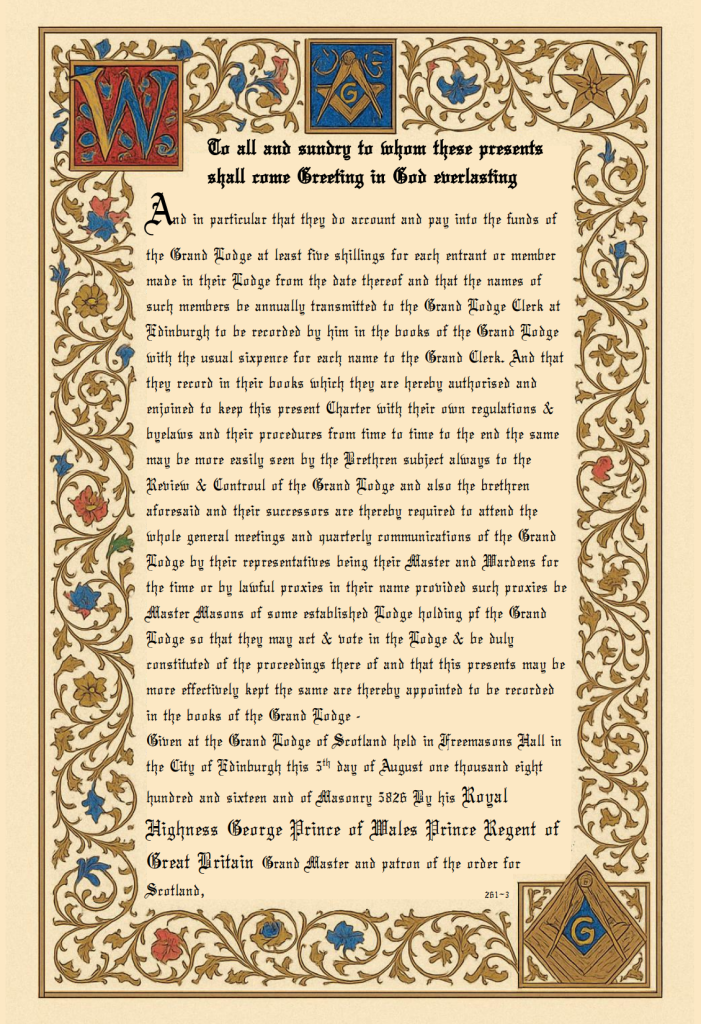 W
G
To all and sundry to whom these presents
shall come Greeting in God everlasting
And in particular that they do account and pay into the funds of
the Grand Lodge at least five shillings for each entrant or member
made in their Lodge from the date thereof and that the names of
such members be annually transmitted to the Grand Lodge Clerk at
Edinburgh to be recorded by him in the books of the Grand Lodge
with the usual sixpence for each name to the Grand Clerk. And that
they record in their books which they are hereby authorised and
enjoined to keep this present Charter with their own regulations &
byelaws and their procedures from time to time to the end the same
may be more easily seen by the Brethren subject always to the
Review & Controul of the Grand Lodge and also the brethren
aforesaid and their successors are thereby required to attend the
whole general meetings and quarterly communications of the Grand
Lodge by their representatives being their Master and Wardens for
the time or by lawful proxies in their name provided such proxies be
Master Masons of some established Lodge holding pf the Grand
Lodge so that they may act & vote in the Lodge & be duly
constituted of the proceedings there of and that this presents may be
more effectively kept the same are thereby appointed to be recorded
in the books of the Grand Lodge -
Given at the Grand Lodge of Scotland held in Freemasons Hall in
the City of Edinburgh this 5th day of August one thousand eight
hundred and sixteen and of Masonry 5826 By his Royal
Highness George Prince of Wales Prince Regent of
Great Britain Grand Master and patron of the order for
Scotland,
2B1-3
G